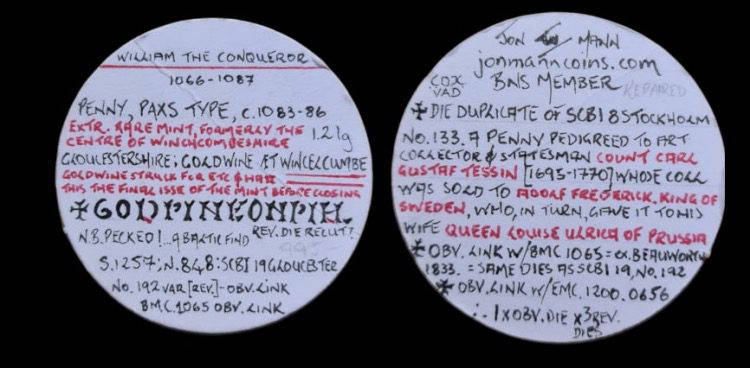 WILLIAM THE CONQUEROR
1066-1087
PENNY, PAXS TYPE, c.1083-86
EXTR. RARE MINT, FORMERLY THE
CENTRE OF WINCHCOMBESHIRE
1.21g
GLOUCESTERSHIRE; GOLDWINE ÆT WINCELCUMBE
GOLDWINE STRUCK FOR ETC & HAR
THIS THE FINAL ISSE OF THE MINT BEFORE CLOSING
✠GOLDPINEONPICL
N.B. PECKED!... A BALTIC FIND
REV. DIE RECUT?
S.1257; N.848; SCBI 19 GLOUCESTER
No. 192 VAR [REV.]-OBV. LINK
BMC.1065 OBV. LINK
JON MANN
jonmanncoins.com
BNS MEMBER
COX
VAD
REPAIRED
✠ DIE DUPLICATE OF SCBI 8 STOCKHOLM
No. 133. A PENNY PEDIGREED TO ART
COLLECTOR & STATESMAN COUNT CARL
GUSTAF TESSIN [1695-1770] WHOSE COLL
WAS SOLD TO ADOLF FREDERICK, KING OF
SWEDEN, WHO, IN TURN, GAVE IT TO HIS
WIFE QUEEN LOUISE ULRICA OF PRUSSIA
✠ OBV. LINK W/ BMC 1065 = ex. BEAUWORTH
1833. = SAME DIES AS SCBI 19, No. 192
✠ OBV. LINK W/ EMC. 1200.0656
∴ 1 x OBV. DIE x 3 REV.
DIES